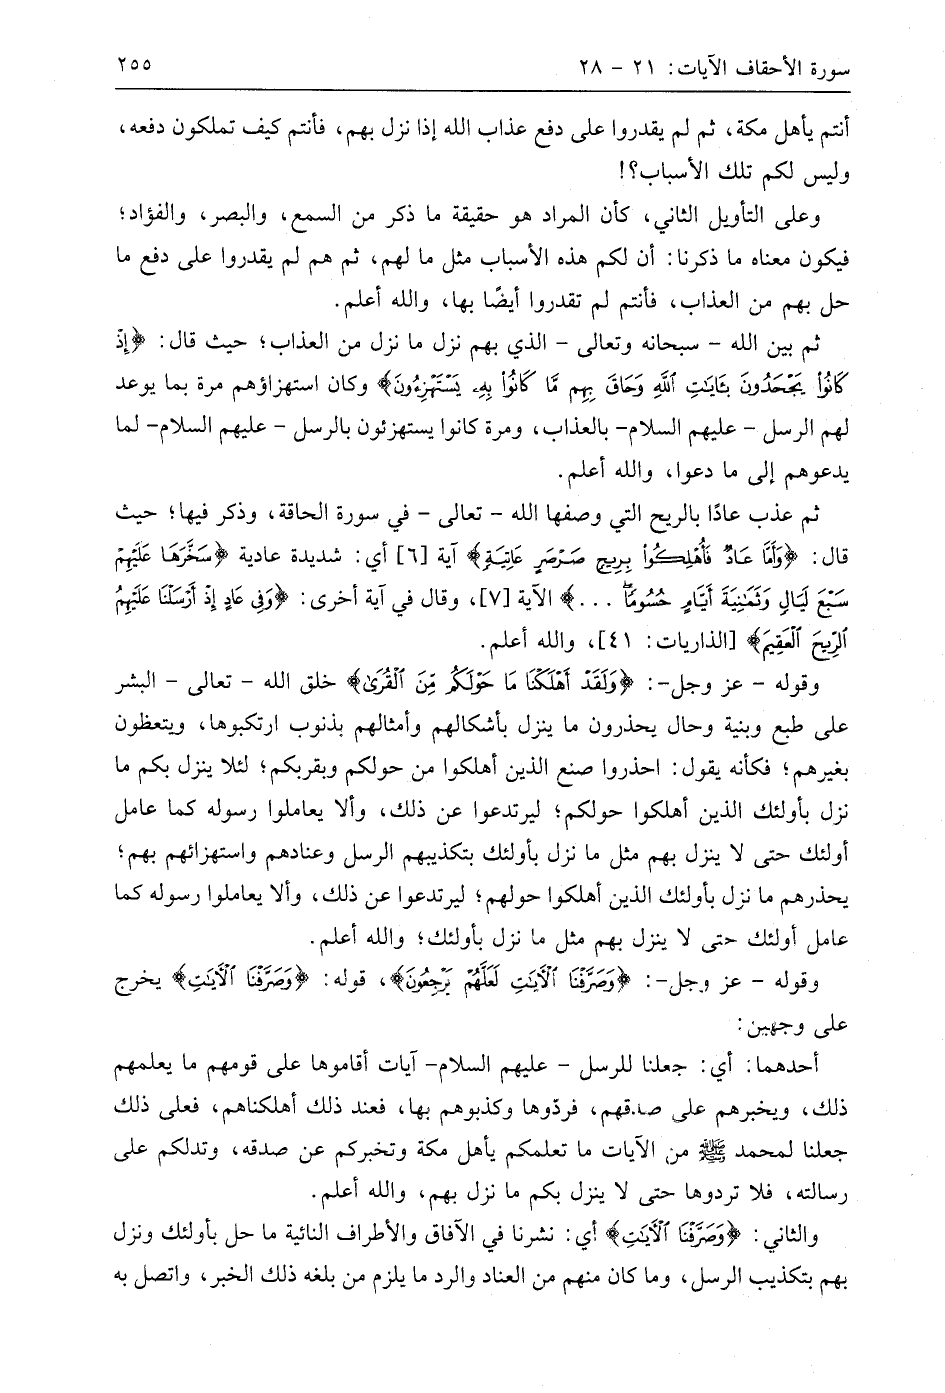 سورة الأحقاف الآيات: ٢١ - ٢٨ ٢٥٥
أنتم يأهل مكة، ثم لم يقدروا على دفع عذاب الله إذا نزل بهم، فأنتم كيف تملكون دفعه،
وليس لكم تلك الأسباب؟!
وعلى التأويل الثاني، كأن المراد هو حقيقة ما ذكر من السمع، والبصر، والفؤاد؛
فيكون معناه ما ذكرنا: أن لكم هذه الأسباب مثل ما لهم، ثم هم لم يقدروا على دفع ما
حل بهم من العذاب، فأنتم لم تقدروا أيضًا بها، والله أعلم.
ثم بين الله - سبحانه وتعالى - الذي بهم نزل ما نزل من العذاب؛ حيث قال: ﴿إِذْ
كَانُوا۟ يَجْحَدُونَ بِـَٔايَـٰتِ ٱللَّهِ وَحَاقَ بِهِم مَّا كَانُوا۟ بِهِۦ يَسْتَهْزِءُونَ﴾ وكان استهزاؤهم مرة بما يوعد
لهم الرسل - عليهم السلام- بالعذاب، ومرة كانوا يستهزئون بالرسل - عليهم السلام- لما
يدعوهم إلى ما دعوا، والله أعلم.
ثم عذب عادًا بالريح التي وصفها الله - تعالى - في سورة الحاقة، وذكر فيها؛ حيث
قال: ﴿وَأَمَّا عَادٌ فَأُهْلِكُوا۟ بِرِيحٍ صَرْصَرٍ عَاتِيَةٍ﴾ آية [٦] أي: شديدة عادية ﴿سَخَّرَهَا عَلَيْهِمْ
سَبْعَ لَيَالٍ وَثَمَـٰنِيَةَ أَيَّامٍ حُسُومًاۖ ...﴾ الآية [٧]، وقال في آية أخرى: ﴿وَفِى عَادٍ إِذْ أَرْسَلْنَا عَلَيْهِمُ
ٱلرِّيحَ ٱلْعَقِيمَ﴾ [الذاريات: ٤١]، والله أعلم.
وقوله - عز وجل-: ﴿وَلَقَدْ أَهْلَكْنَا مَا حَوْلَكُم مِّنَ ٱلْقُرَىٰ﴾ خلق الله - تعالى - البشر
على طبع وبنية وحال يحذرون ما ينزل بأشكالهم وأمثالهم بذنوب ارتكبوها، ويتعظون
بغيرهم؛ فكأنه يقول: احذروا صنع الذين أهلكوا من حولكم وبقربكم؛ لئلا ينزل بكم ما
نزل بأولئك الذين أهلكوا حولكم؛ ليرتدعوا عن ذلك، وألا يعاملوا رسوله كما عامل
أولئك حتى لا ينزل بهم مثل ما نزل بأولئك بتكذيبهم الرسل وعنادهم واستهزائهم بهم؛
يحذرهم ما نزل بأولئك الذين أهلكوا حولهم؛ ليرتدعوا عن ذلك، وألا يعاملوا رسوله كما
عامل أولئك حتى لا ينزل بهم مثل ما نزل بأولئك؛ والله أعلم.
وقوله - عز وجل-: ﴿وَصَرَّفْنَا ٱلْـَٔايَـٰتِ لَعَلَّهُمْ يَرْجِعُونَ﴾، قوله: ﴿وَصَرَّفْنَا ٱلْـَٔايَـٰتِ﴾ يخرج
على وجهين:
أحدهما: أي: جعلنا للرسل - عليهم السلام- آيات أقاموها على قومهم ما يعلمهم
ذلك، ويخبرهم على صدقهم، فردّوها وكذبوهم بها، فعند ذلك أهلكناهم، فعلى ذلك
جعلنا لمحمد ﷺ من الآيات ما تعلمكم يأهل مكة وتخبركم عن صدقه، وتدلكم على
رسالته، فلا تردوها حتى لا ينزل بكم ما نزل بهم، والله أعلم.
والثاني: ﴿وَصَرَّفْنَا ٱلْـَٔايَـٰتِ﴾ أي: نشرنا في الآفاق والأطراف النائية ما حل بأولئك ونزل
بهم بتكذيب الرسل، وما كان منهم من العناد والرد ما يلزم من بلغه ذلك الخبر، واتصل به